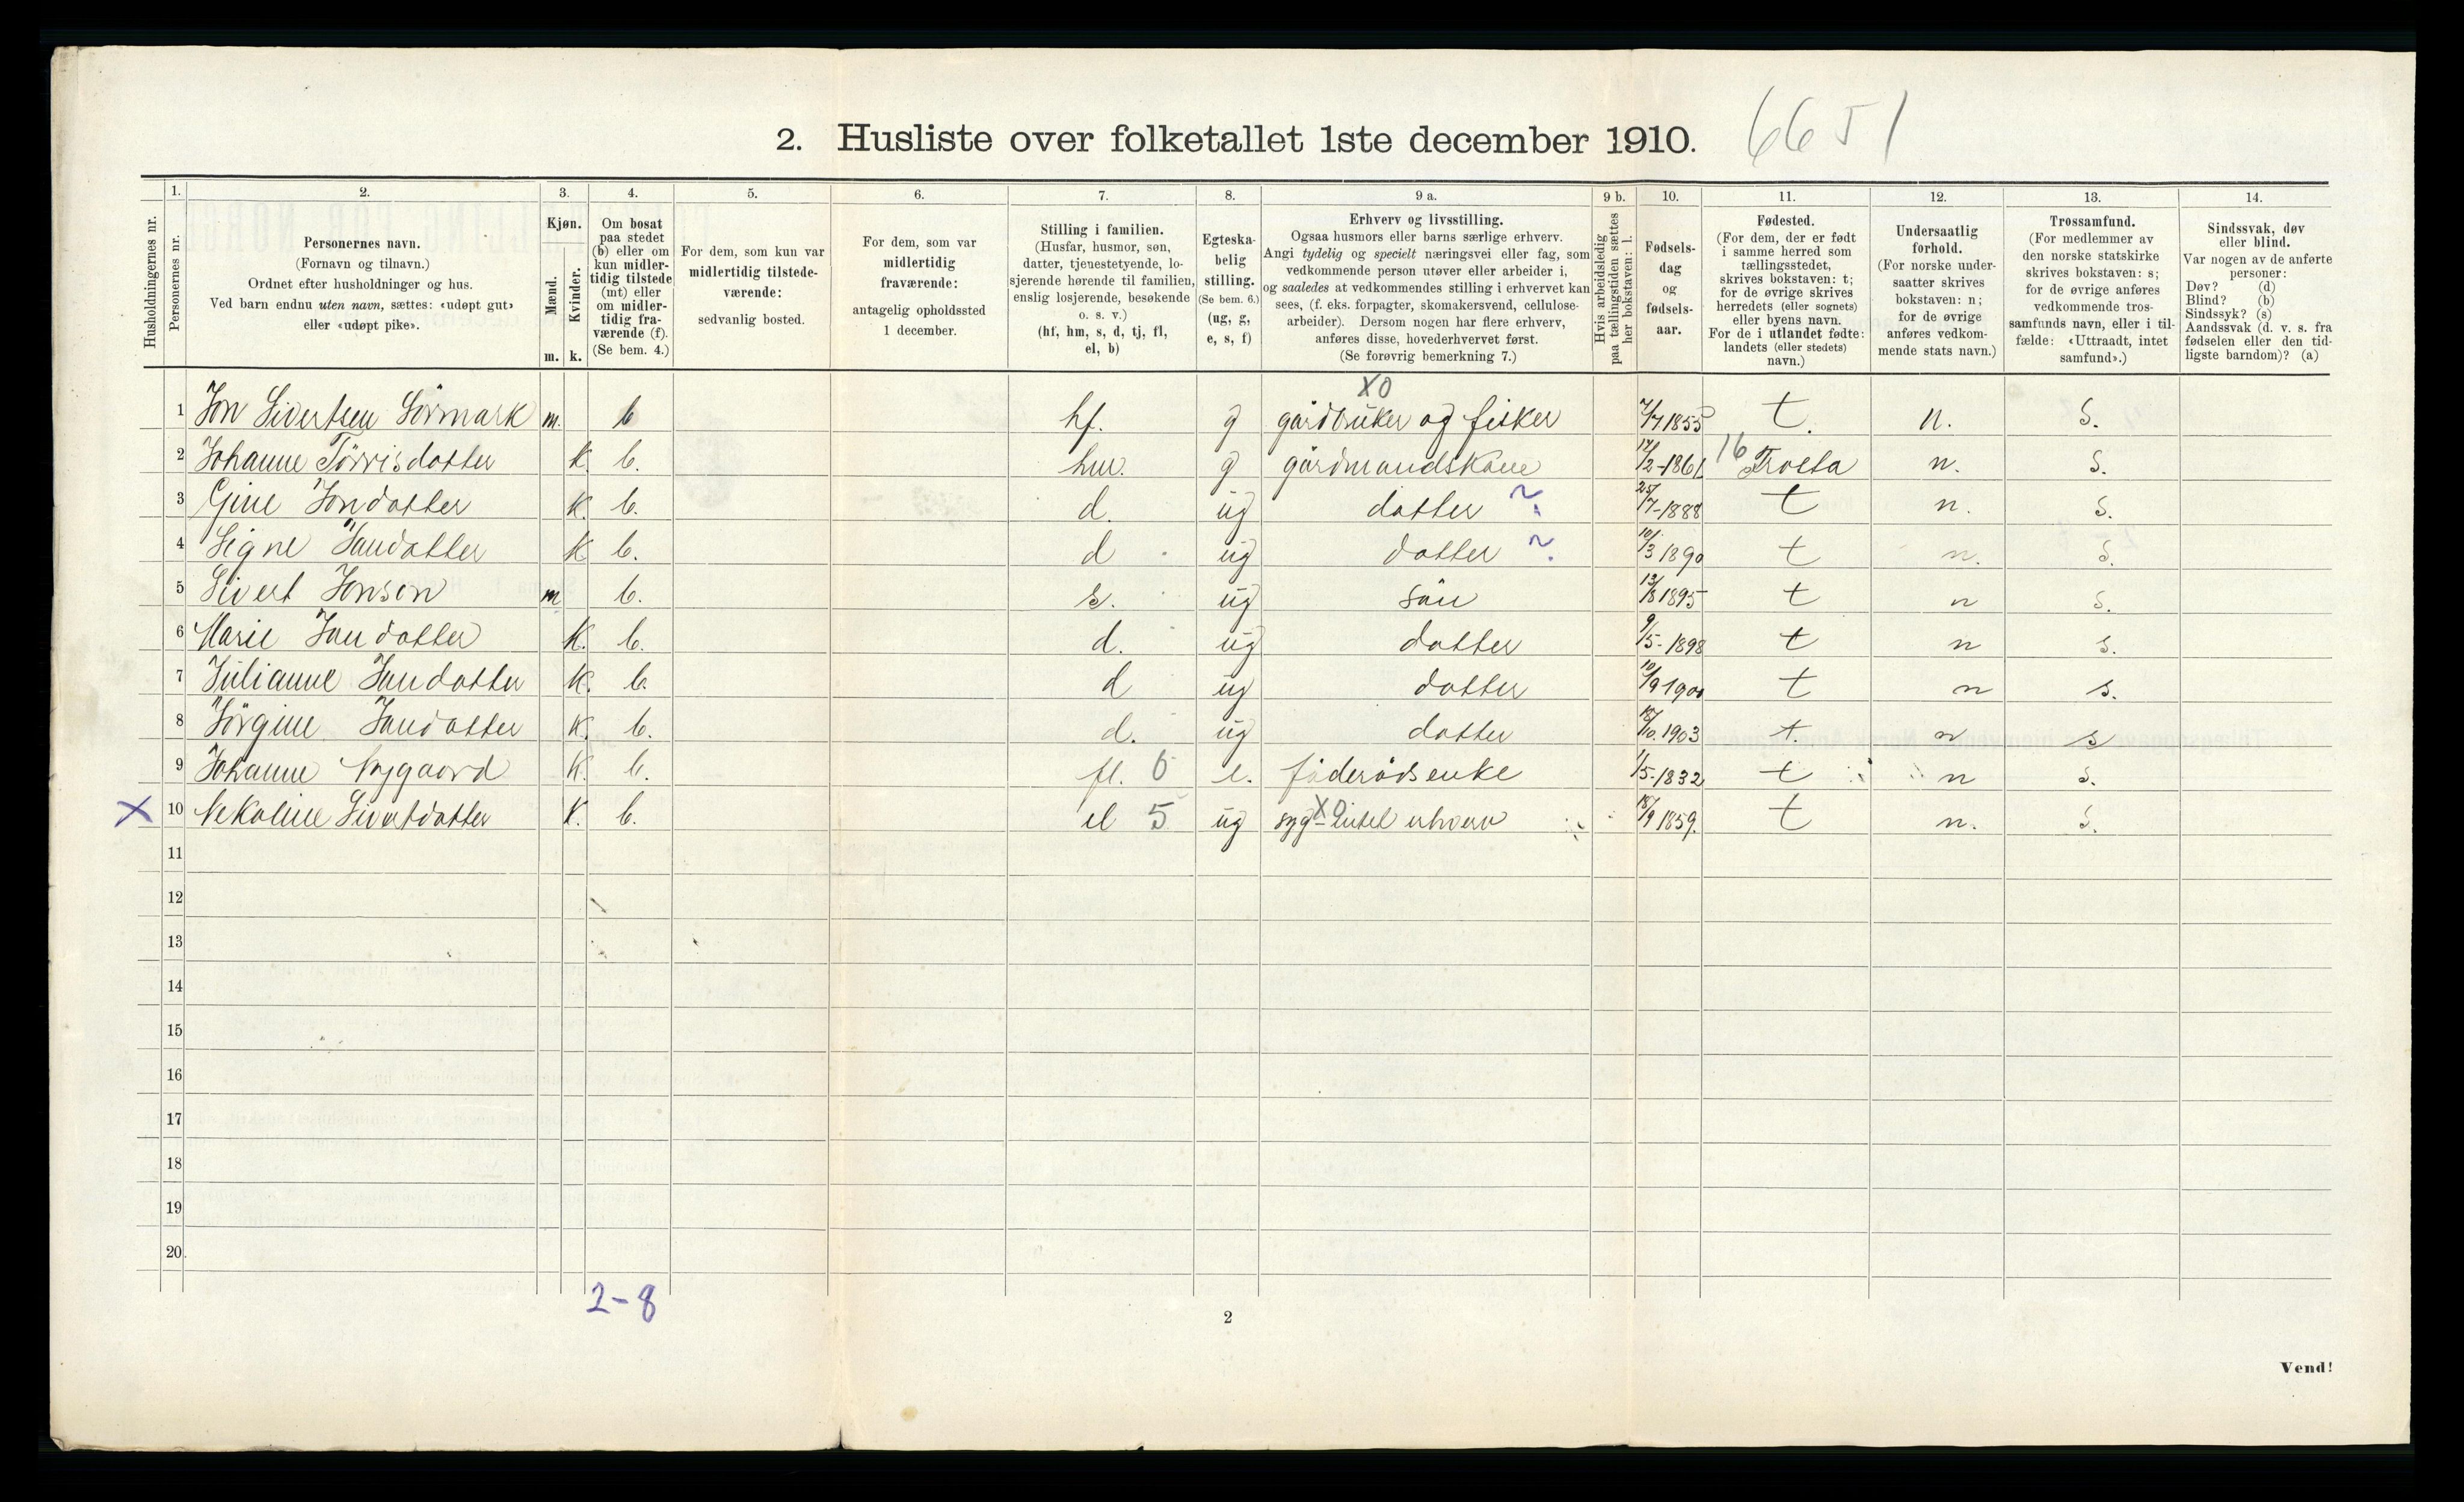 2. Husliste over folketallet 1ste december 1910. 6651
Husholdningernes nr.
1.
Personernes nr.
2.
Personernes navn.
(Fornavn og tilnavn.)
Ordnet efter husholdninger og hus.
Ved barn endnu uten navn, sættes: «udøpt gut»
eller «udøpt pike».
3.
Kjøn.
Mænd.
Kvinder.
m. k.
4.
Om bosat
paa stedet
(b) eller om
kun midler-
tidig tilstede
(mt) eller
om midler-
tidig fra-
værende (f).
(Se bem. 4.)
5.
For dem, som kun var
midlertidig tilstede-
værende:
sedvanlig bosted.
6.
For dem, som var
midlertidig
fraværende:
antagelig opholdssted
1 december.
7.
Stilling i familien.
(Husfar, husmor, søn,
datter, tjenestetyende, lo-
sjerende hørende til familien,
enslig losjerende, besøkende
o. s. v.)
(hf, hm, s, d, tj, fl,
el, b)
8.
Egteska-
belig
stilling.
(Se bem. 6.)
(ug, g,
e, s, f)
9 a.
Erhverv og livsstilling.
Ogsaa husmors eller barns særlige erhverv.
Angi tydelig og specielt næringsvei eller fag, som
vedkommende person utøver eller arbeider i,
og saaledes at vedkommendes stilling i erhvervet kan
sees, (f. eks. forpagter, skomakersvend, cellulose-
arbeider). Dersom nogen har flere erhverv,
anføres disse, hovederhvervet først.
(Se forøvrig bemerkning 7.)
9 b.
Hvis arbeidsledig
paa tællingstiden sættes
her bokstaven: l.
10.
Fødsels-
dag
og
fødsels-
aar.
11.
Fødested.
(For dem, der er født
i samme herred som
tællingsstedet,
skrives bokstaven: t;
for de øvrige skrives
herredets (eller sognets)
eller byens navn.
For de i utlandet fødte:
landets (eller stedets)
navn.)
12.
Undersaatlig
forhold.
(For norske under-
saatter skrives
bokstaven: n;
for de øvrige
anføres vedkom-
mende stats navn.)
13.
Trossamfund.
(For medlemmer av
den norske statskirke
skrives bokstaven: s;
for de øvrige anføres
vedkommende tros-
samfunds navn, eller i til-
fælde: «Uttraadt, intet
samfund».)
14.
Sindssvak, døv
eller blind.
Var nogen av de anførte
personer:
Døv? (d)
Blind? (b)
Sindssyk? (s)
Aandssvak (d. v. s. fra
fødselen eller den tid-
ligste barndom)? (a)
XO
1 Jon Sivertsen Sörmark m. b hf. g gårdbruker og fisker 7/7 1855 t. n. S.
2 Johanne Törrisdatter K. b. hm. g gårdmandskone 17/2-1861 16 Frosta n. S.
3 Gine Jondatter K. b. d. ug datter 25/7-1888 t n. S.
4 Signe Jondatter K b. d ug datter 10/3 1890 t n. S.
5 Sivert Jonsen m b. s. ug sön 13/8 1895 t n S.
6 Marie Jondatter K. b. d. ug datter 9/5-1898 t n s.
7 Julianne Jondatter K. b. d ug datter 10/9 1900 t n s.
8 Jörgine Jondatter K. b. d. ug datter 18/10.1903 t. n s
9 Johanne Nygaard K. b. fl. 6 e. föderådsenke 1/5-1832 t n S.
X 10 Nekoline Sivertdatter K. b. el 5 ug syg XO intet erhverv 18/9 1859. t n. S.
11
12
13
14
15
16
17
18
19
20
2-8
2
Vend!